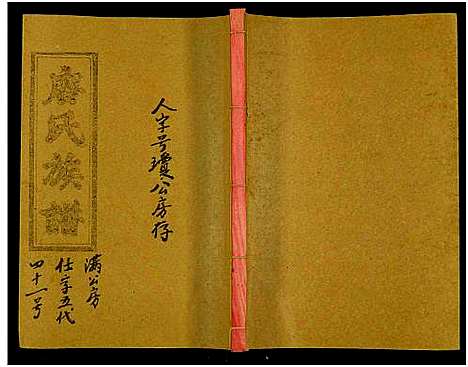 人字号瓊公房存
廖氏族譜
满公房
仕字五代
四十一号